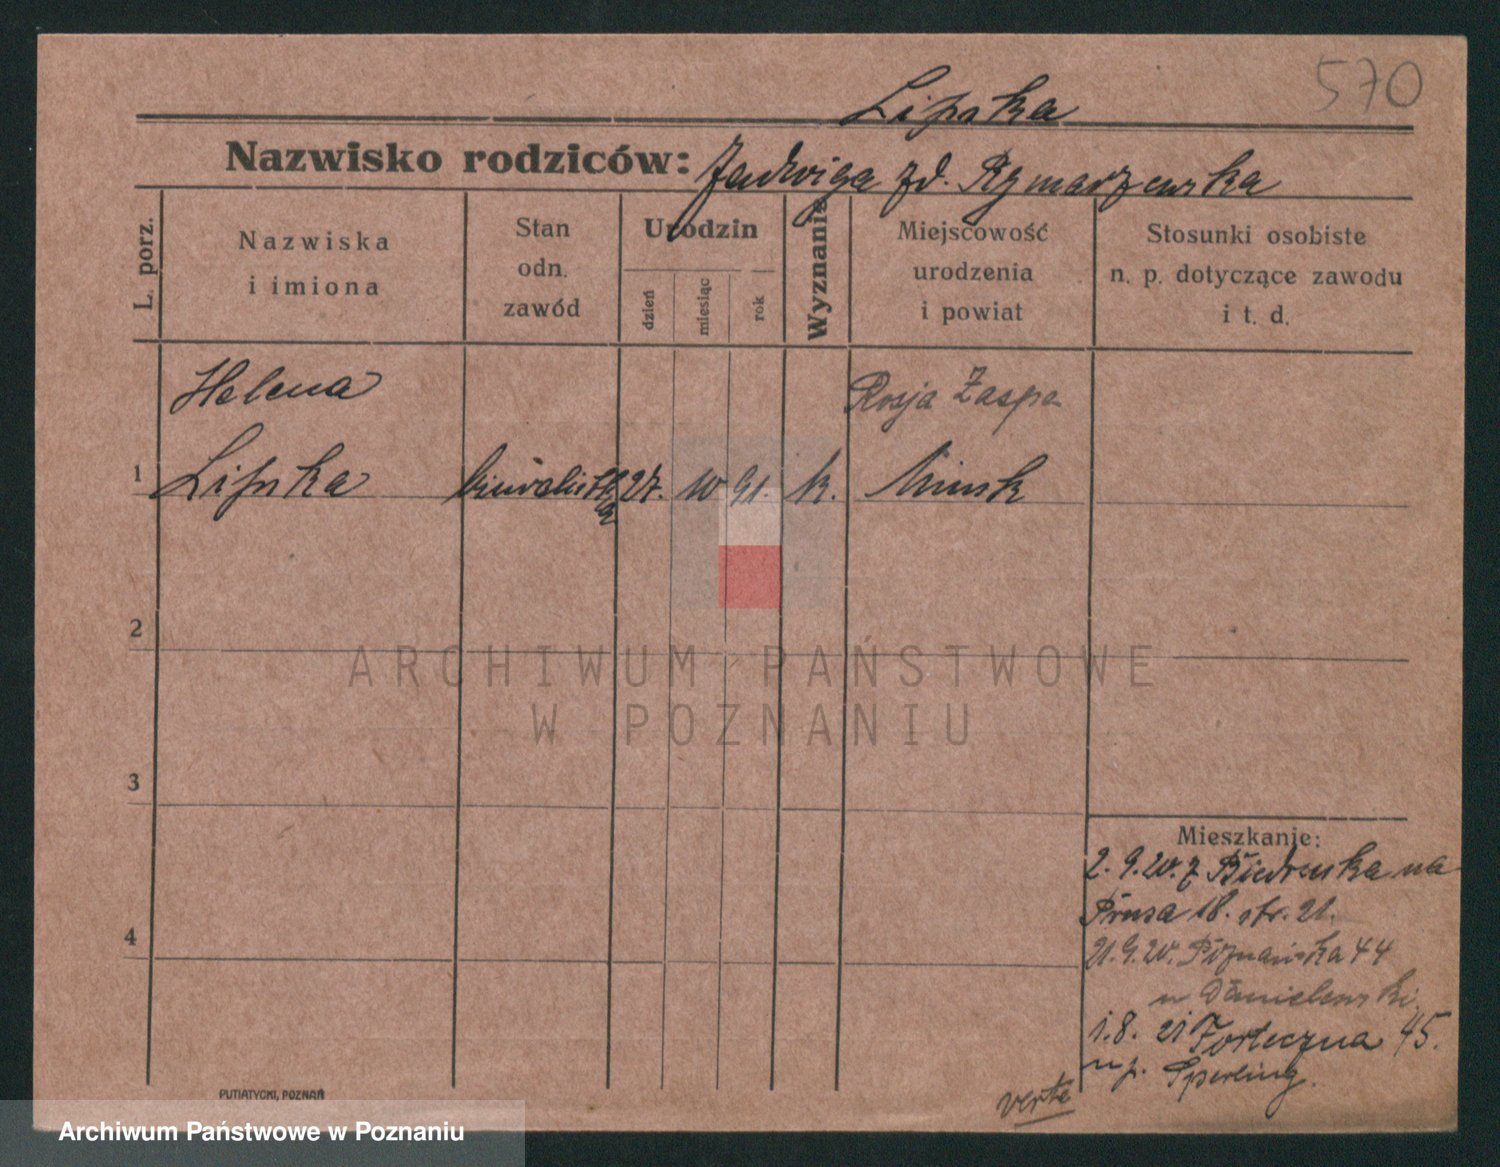 570
Lipska
Nazwisko rodziców: Jadwiga zd. Rymarzewska
L. porz.
Nazwiska
i imiona
Stan
odn.
zawód
Urodzin
dzień
miesiąc
rok
Wyznanie
Miejscowość
urodzenia
i powiat
Stosunki osobiste
n. p. dotyczące zawodu
i t. d.
Helena
Rosja Zaspa
1 Lipska 27. 10 91. k. Minsk
2
ARCHIWUM PAŃSTWOWE
W POZNANIU
3
Mieszkanie:
2. 9. 20. z Biedruska na
Prusa 18. str. 21.
4
21. 9. 20. Poznańska 44
u Danielewski
1. 8. 21 Forteczna 45.
u p. Sperling.
verte
PUTIATYCKI, POZNAŃ
Archiwum Państwowe w Poznaniu